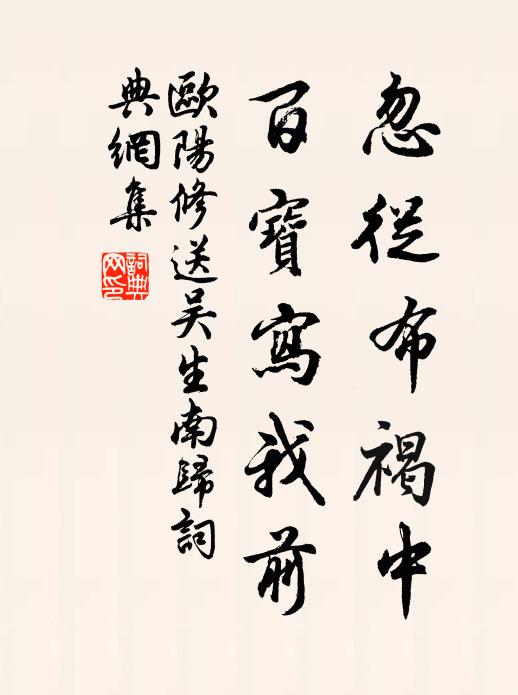 忽從布褐中
百寶寫我前
歐陽修送吴生南歸詞
典網集
詞典网印